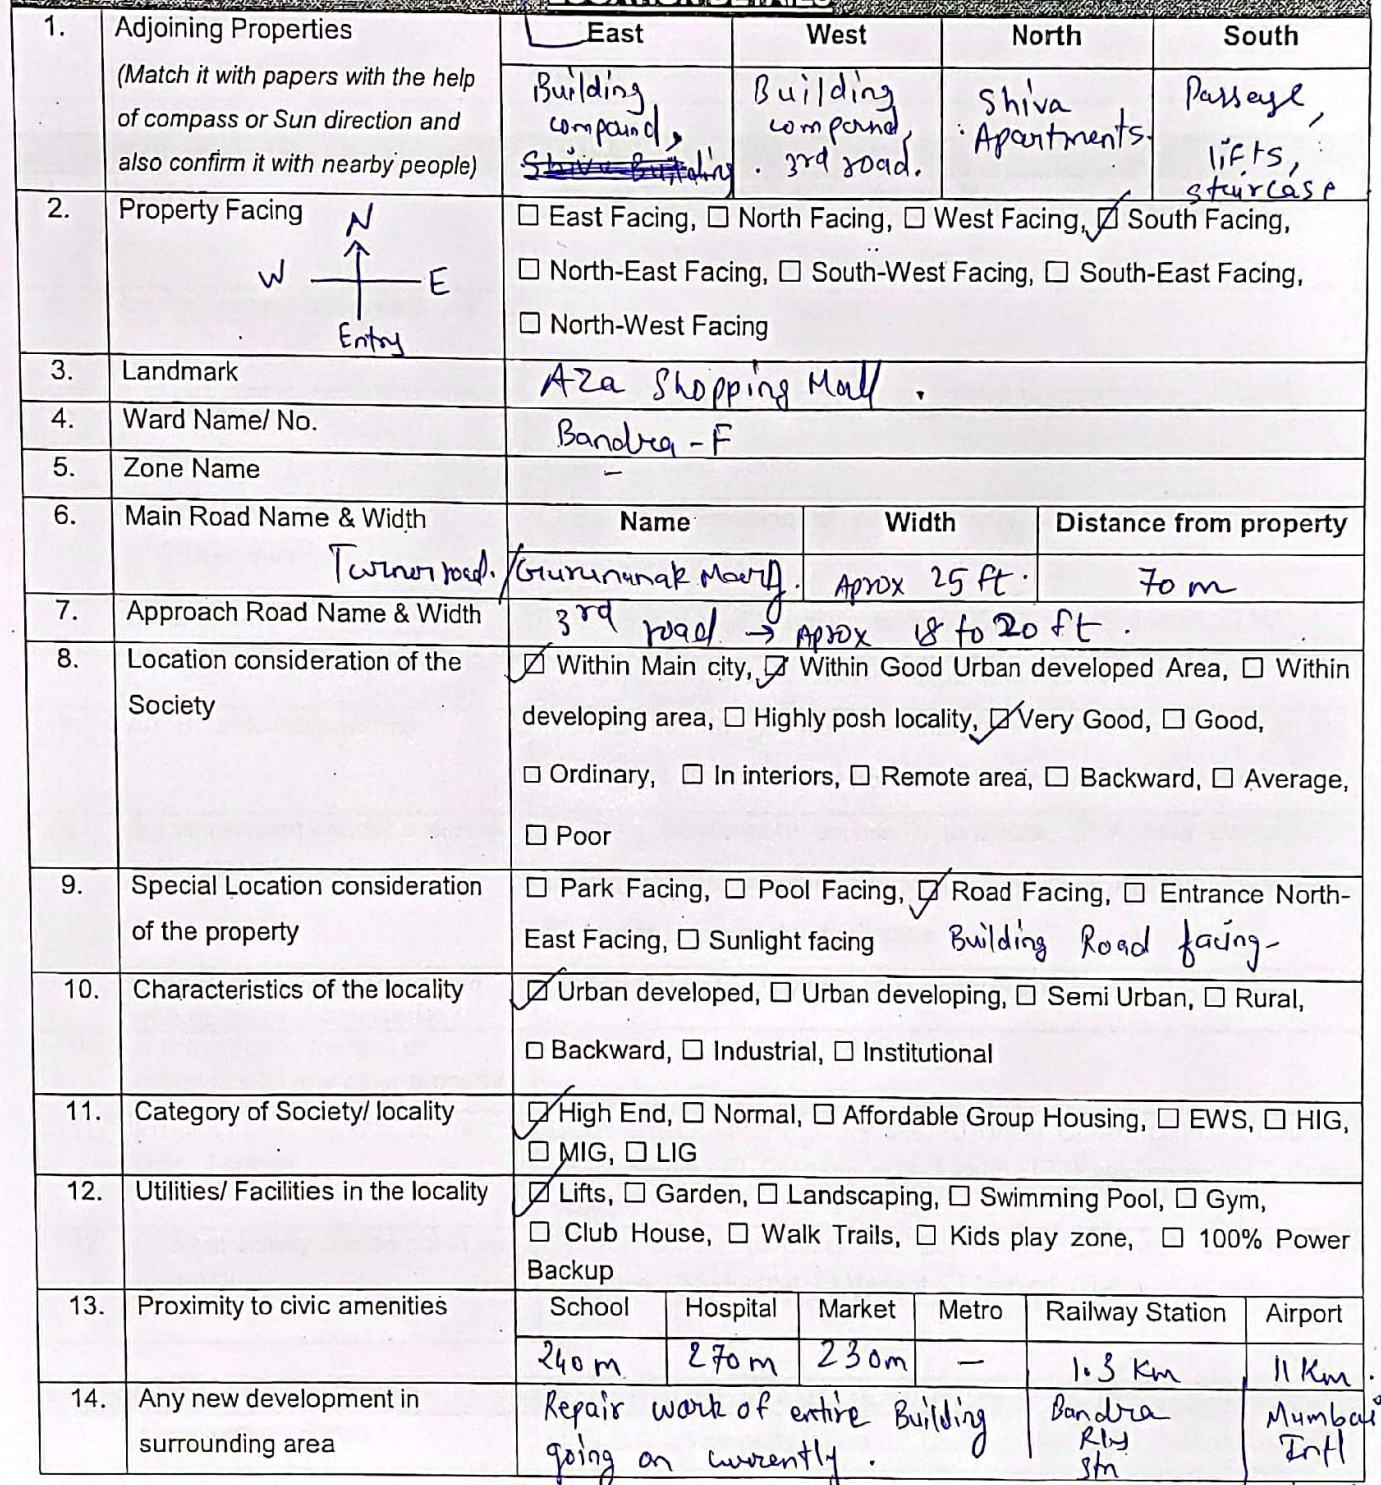 LOCATION DETAILS
1. Adjoining Properties East West North South
(Match it with papers with the help
of compass or Sun direction and
also confirm it with nearby people)
Building
compound,
Shiva Building
Building
compound,
3rd road.
Shiva
Apartments.
Passeye,
lifts,
staircase
2. Property Facing
N
W E
Entry
☐ East Facing, ☐ North Facing, ☐ West Facing, ☑ South Facing,
☐ North-East Facing, ☐ South-West Facing, ☐ South-East Facing,
☐ North-West Facing
3. Landmark AZa Shopping Mall.
4. Ward Name/ No. Bandra - F
5. Zone Name –
6. Main Road Name & Width Name Width Distance from property
Turner road. / Gurunanak Marg. Aprox 25 ft. 70 m
7. Approach Road Name & Width 3rd road → Aprox 18 to 20 ft.
8. Location consideration of the
Society
☑ Within Main city, ☑ Within Good Urban developed Area, ☐ Within
developing area, ☐ Highly posh locality, ☑ Very Good, ☐ Good,
☐ Ordinary, ☐ In interiors, ☐ Remote area, ☐ Backward, ☐ Average,
☐ Poor
9. Special Location consideration
of the property
☐ Park Facing, ☐ Pool Facing, ☑ Road Facing, ☐ Entrance North-
East Facing, ☐ Sunlight facing Building Road facing-
10. Characteristics of the locality
☑ Urban developed, ☐ Urban developing, ☐ Semi Urban, ☐ Rural,
☐ Backward, ☐ Industrial, ☐ Institutional
11. Category of Society/ locality
☑ High End, ☐ Normal, ☐ Affordable Group Housing, ☐ EWS, ☐ HIG,
☐ MIG, ☐ LIG
12. Utilities/ Facilities in the locality
☑ Lifts, ☐ Garden, ☐ Landscaping, ☐ Swimming Pool, ☐ Gym,
☐ Club House, ☐ Walk Trails, ☐ Kids play zone, ☐ 100% Power
Backup
13. Proximity to civic amenities School Hospital Market Metro Railway Station Airport
240 m 270 m 230m – 1.3 Km 11 Km.
14. Any new development in
surrounding area
Repair work of entire Building
going on currently.
Bandra
Rly
Stn
Mumbai
Intl